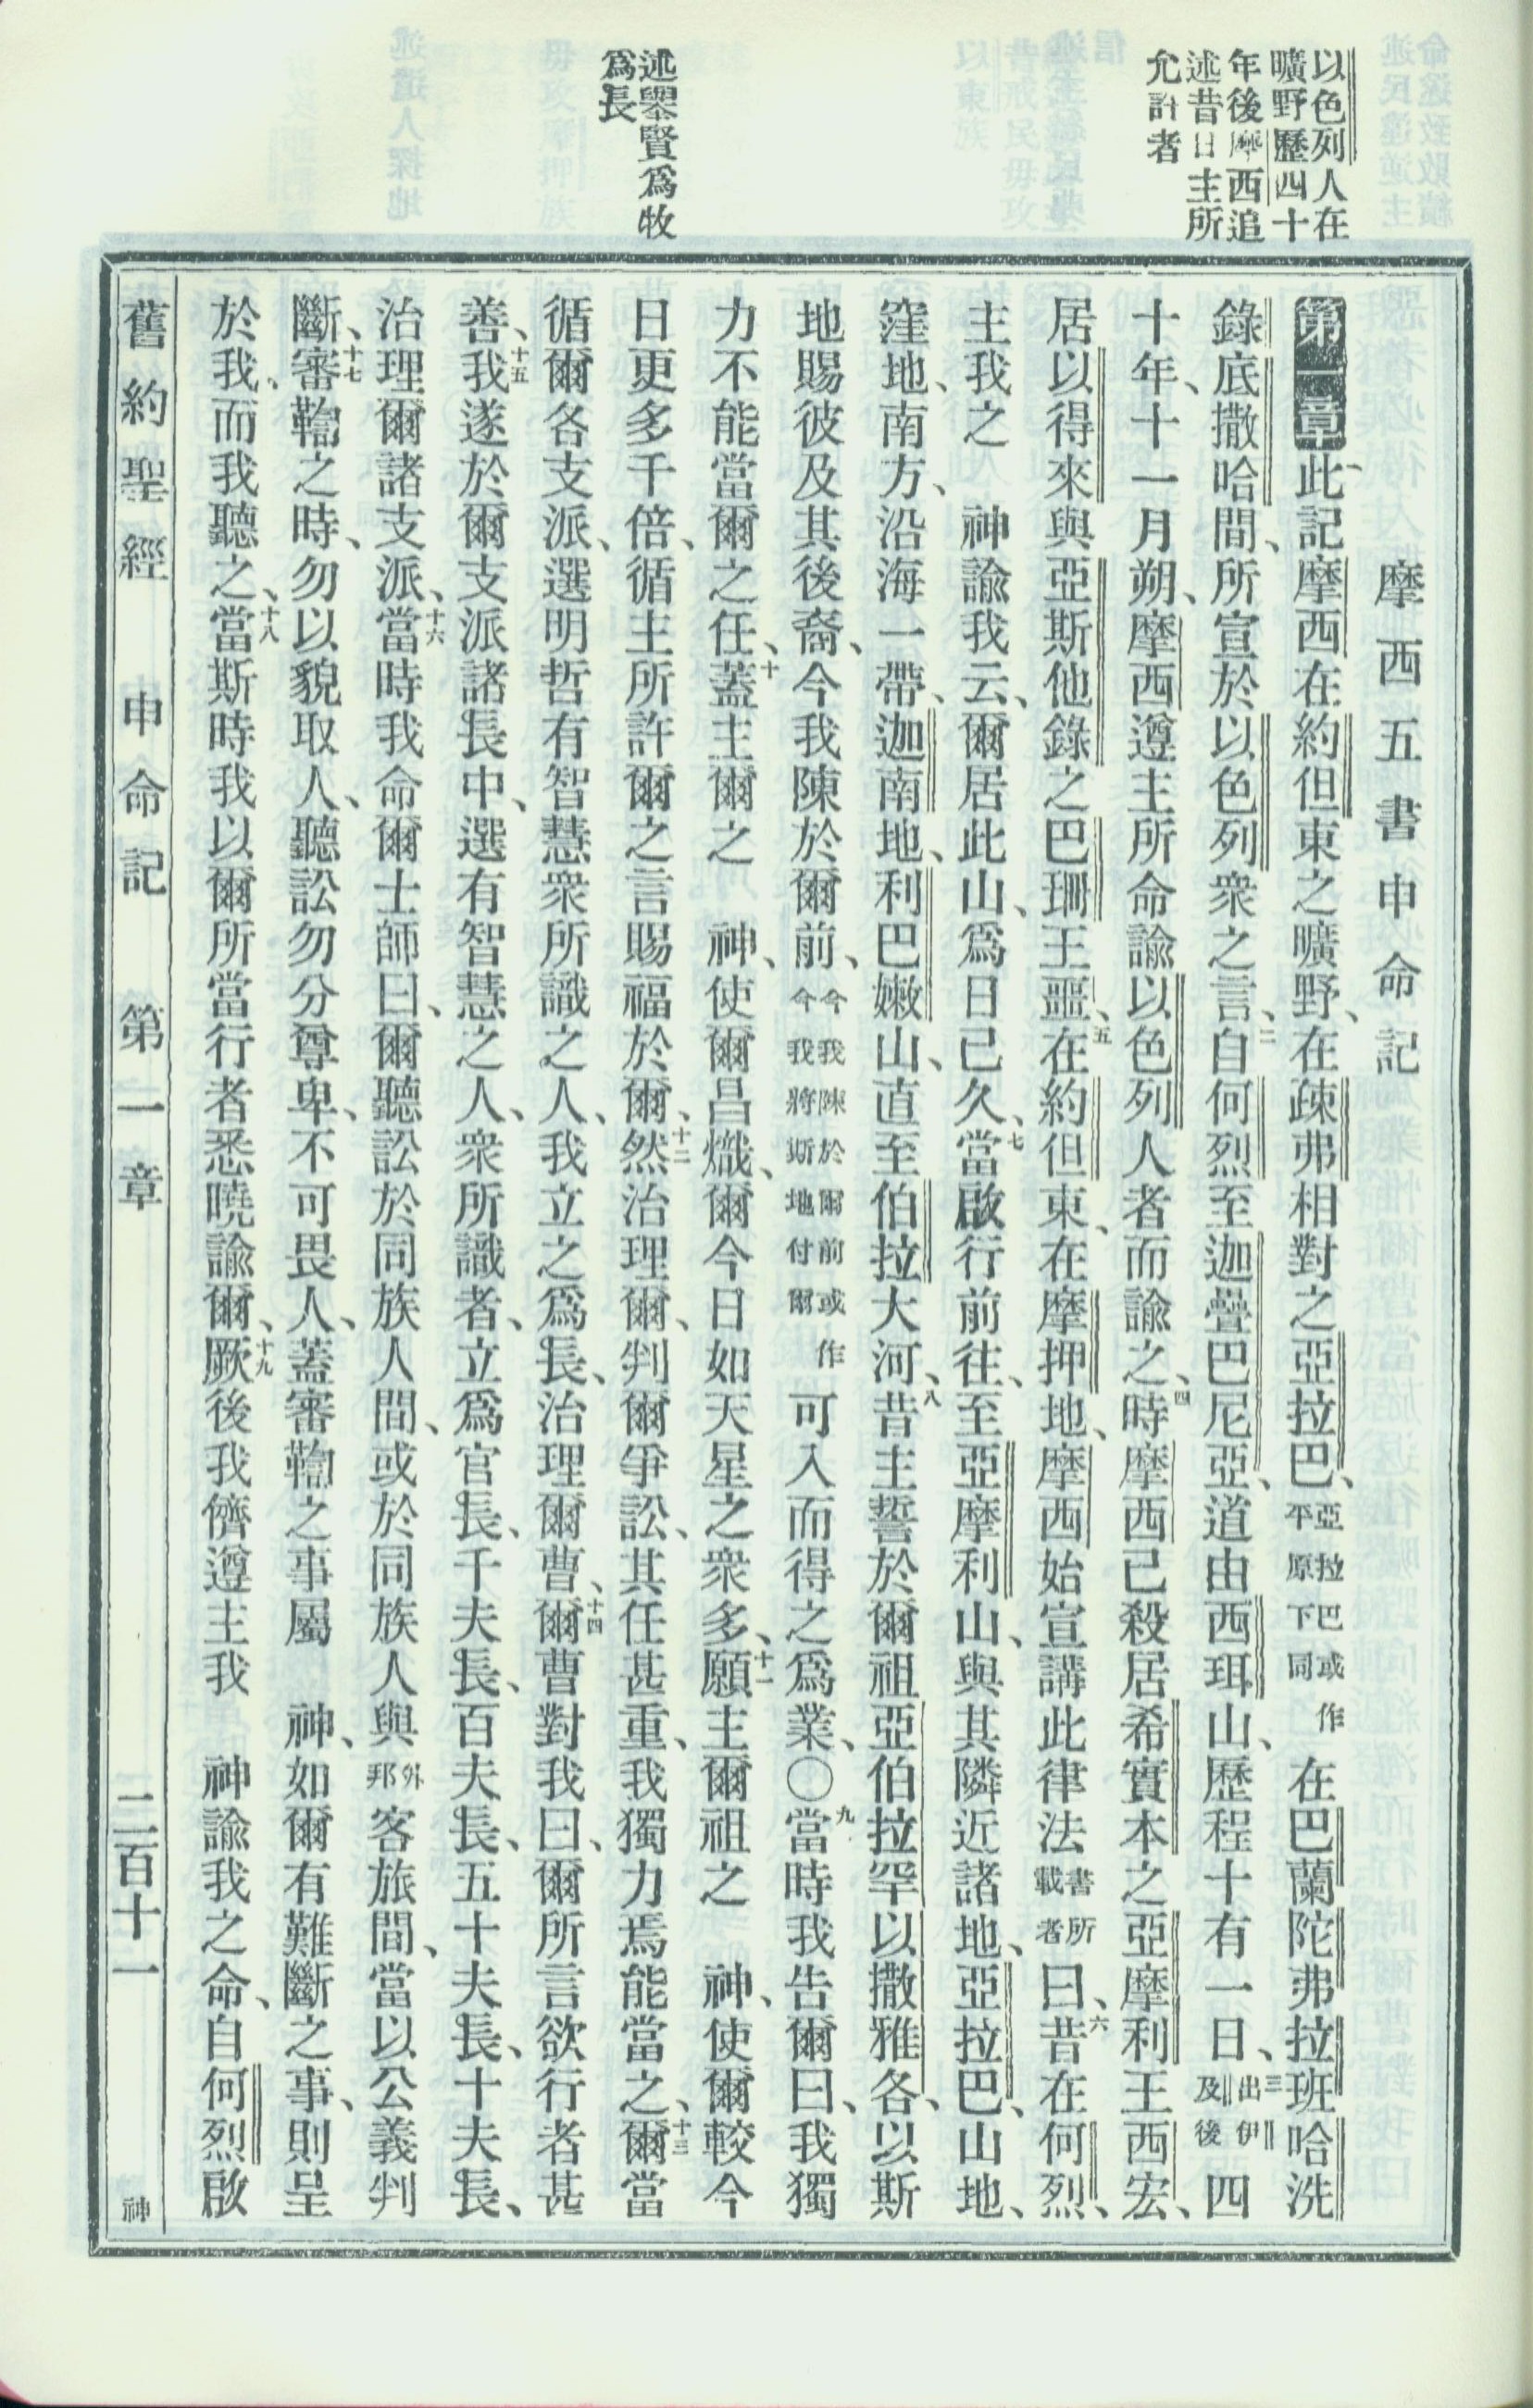 以色列人在
曠野歷四十
年後摩西追
述昔日主所
允許者
述舉賢爲牧
爲長
摩西五書申命記
第一章 一此記摩西在約但東之曠野、在疎弗相對之亞拉巴、亞拉巴或作平原下同在巴蘭陀弗拉班哈洗
錄底撒哈間、所宣於以色列衆之言、二自何烈至迦疊巴尼亞、道由西珥山、歷程十有一日、三出伊及後四
十年、十一月朔、摩西遵主所命諭以色列人者而諭之、四時摩西已殺居希實本之亞摩利王西宏、
居以得來與亞斯他錄之巴珊王噩、五在約但東、在摩押地、摩西始宣講此律法書所載者曰、六昔在何烈、
主我之　神諭我云、爾居此山、爲日已久、七當啟行前往、至亞摩利山、與其隣近諸地、亞拉巴、山地、
窪地、南方、沿海一帶、迦南地、利巴嫩山、直至伯拉大河、八昔主誓於爾祖亞伯拉罕以撒雅各、以斯
地賜彼及其後裔、今我陳於爾前、今我陳於爾前或作今我將斯地付爾可入而得之爲業、〇九當時我告爾曰、我獨
力不能當爾之任、十蓋主爾之　神、使爾昌熾、爾今日如天星之衆多、十一願主爾祖之　神、使爾較今
日更多千倍、循主所許爾之言賜福於爾、十二然治理爾、判爾爭訟、其任甚重、我獨力焉能當之、十三爾當
循爾各支派、選明哲有智慧衆所識之人、我立之爲長、治理爾曹、十四爾曹對我曰、爾所言欲行者甚
善、十五我遂於爾支派諸長中、選有智慧之人、衆所識者、立爲官長、千夫長、百夫長、五十夫長、十夫長、
治理爾諸支派、十六當時我命爾士師曰、爾聽訟於同族人間、或於同族人與外邦客旅間、當以公義判
斷、十七審鞫之時、勿以貌取人、聽訟勿分尊卑、不可畏人、蓋審鞫之事屬　神、如爾有難斷之事、則呈
於我、而我聽之、十八當斯時我以爾所當行者悉曉諭爾、十九厥後我儕遵主我　神諭我之命、自何烈啟
舊約聖經　申命記　第一章　二百十一　神